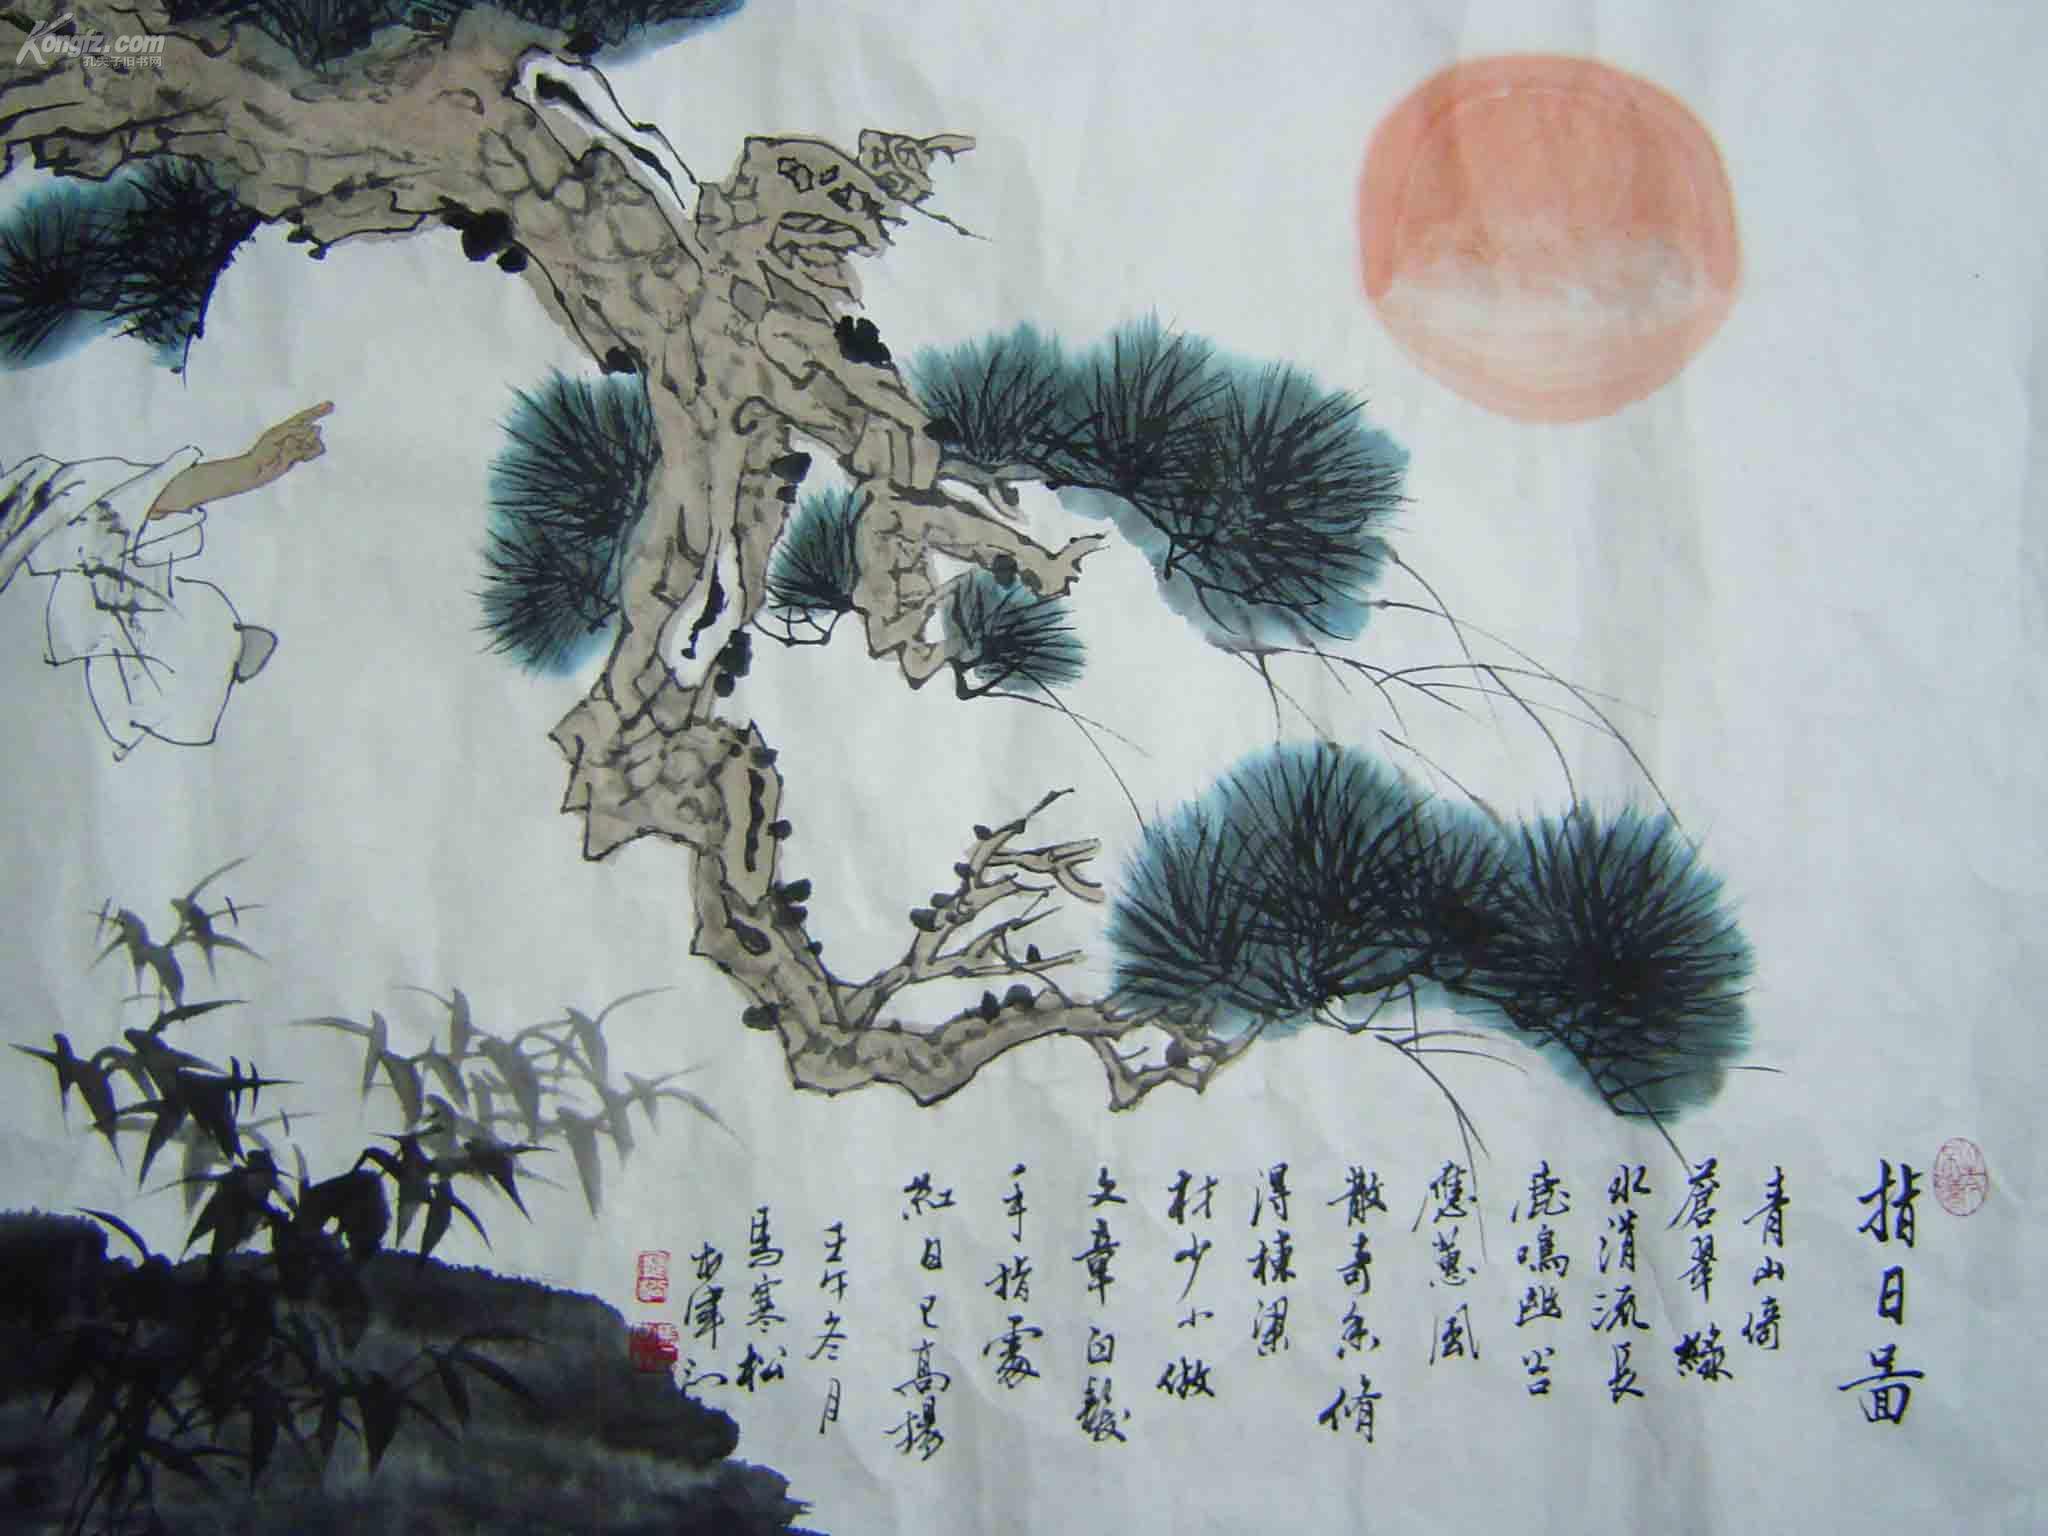 Kongfz.com
孔夫子旧书网
指日啚
青山倚
蒼翠 綠
水消流長
鹿鳴幽谷
應蕙風
散奇条脩
得棟梁
材少小做
文章白鬢
手指處
紅日已高揚
壬午冬月
馬寒松
於津門